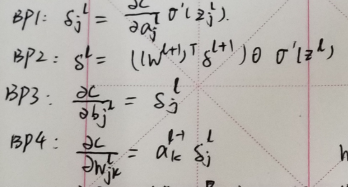 BP1: δ_j^l = ∂C/∂a_j^l σ'(z_j^l).
BP2: δ^l = ((w^{l+1})^T δ^{l+1}) ⊙ σ'(z^l)
BP3: ∂C/∂b_j^l = δ_j^l
BP4: ∂C/∂w_{jk}^l = a_k^{l-1} δ_j^l